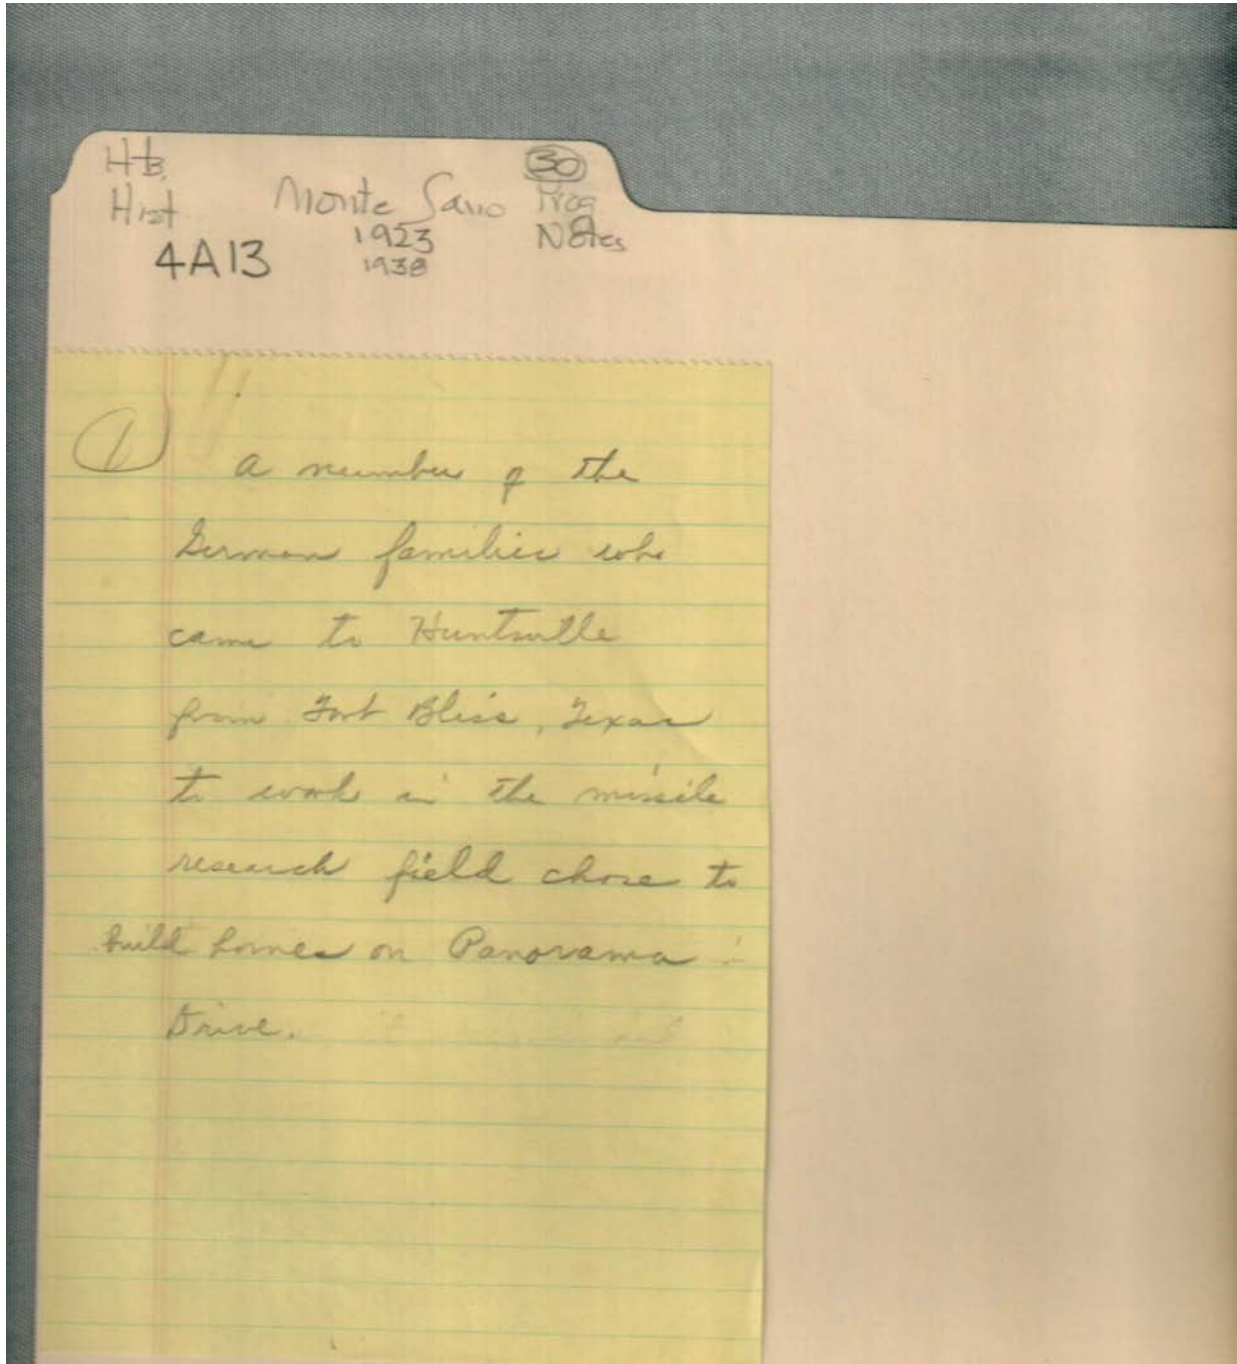 Hist
Monte Sano
1923
1938
30
Prog
Notes
4A13
1
A number of the
German families who
came to Huntsville
from Fort Bliss, Texas
to work in the missile
research field chose to
build homes on Panorama
Drive.